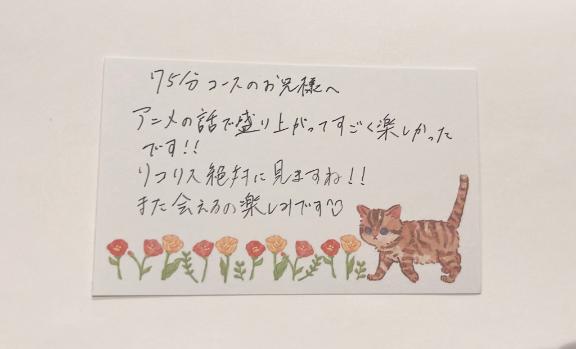 75分コースのお兄様へ
アニメの話で盛り上がってすごく楽しかった
です!!
リコリス絶対に見ますね!!
また会えるの楽しみです♡